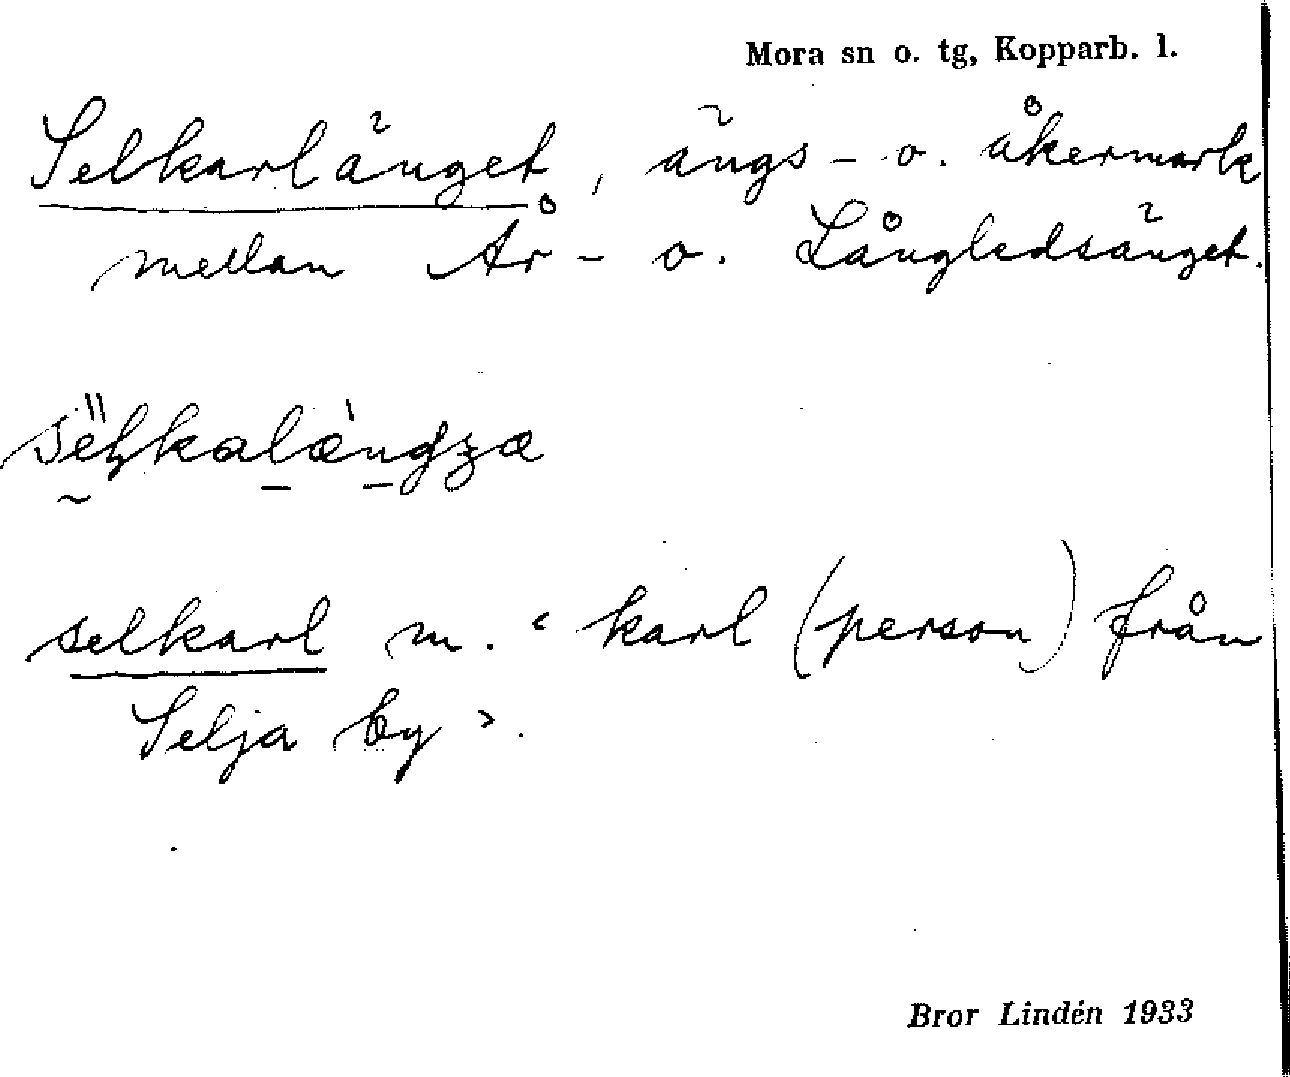 Mora sn o. tg, Kopparb. l.
Selkarlänget, ängs- o. åkermark
mellan År- o. Långledsänget.
selkarl m. ‘karl (person) från
Selja by’.
Bror Lindén 1933